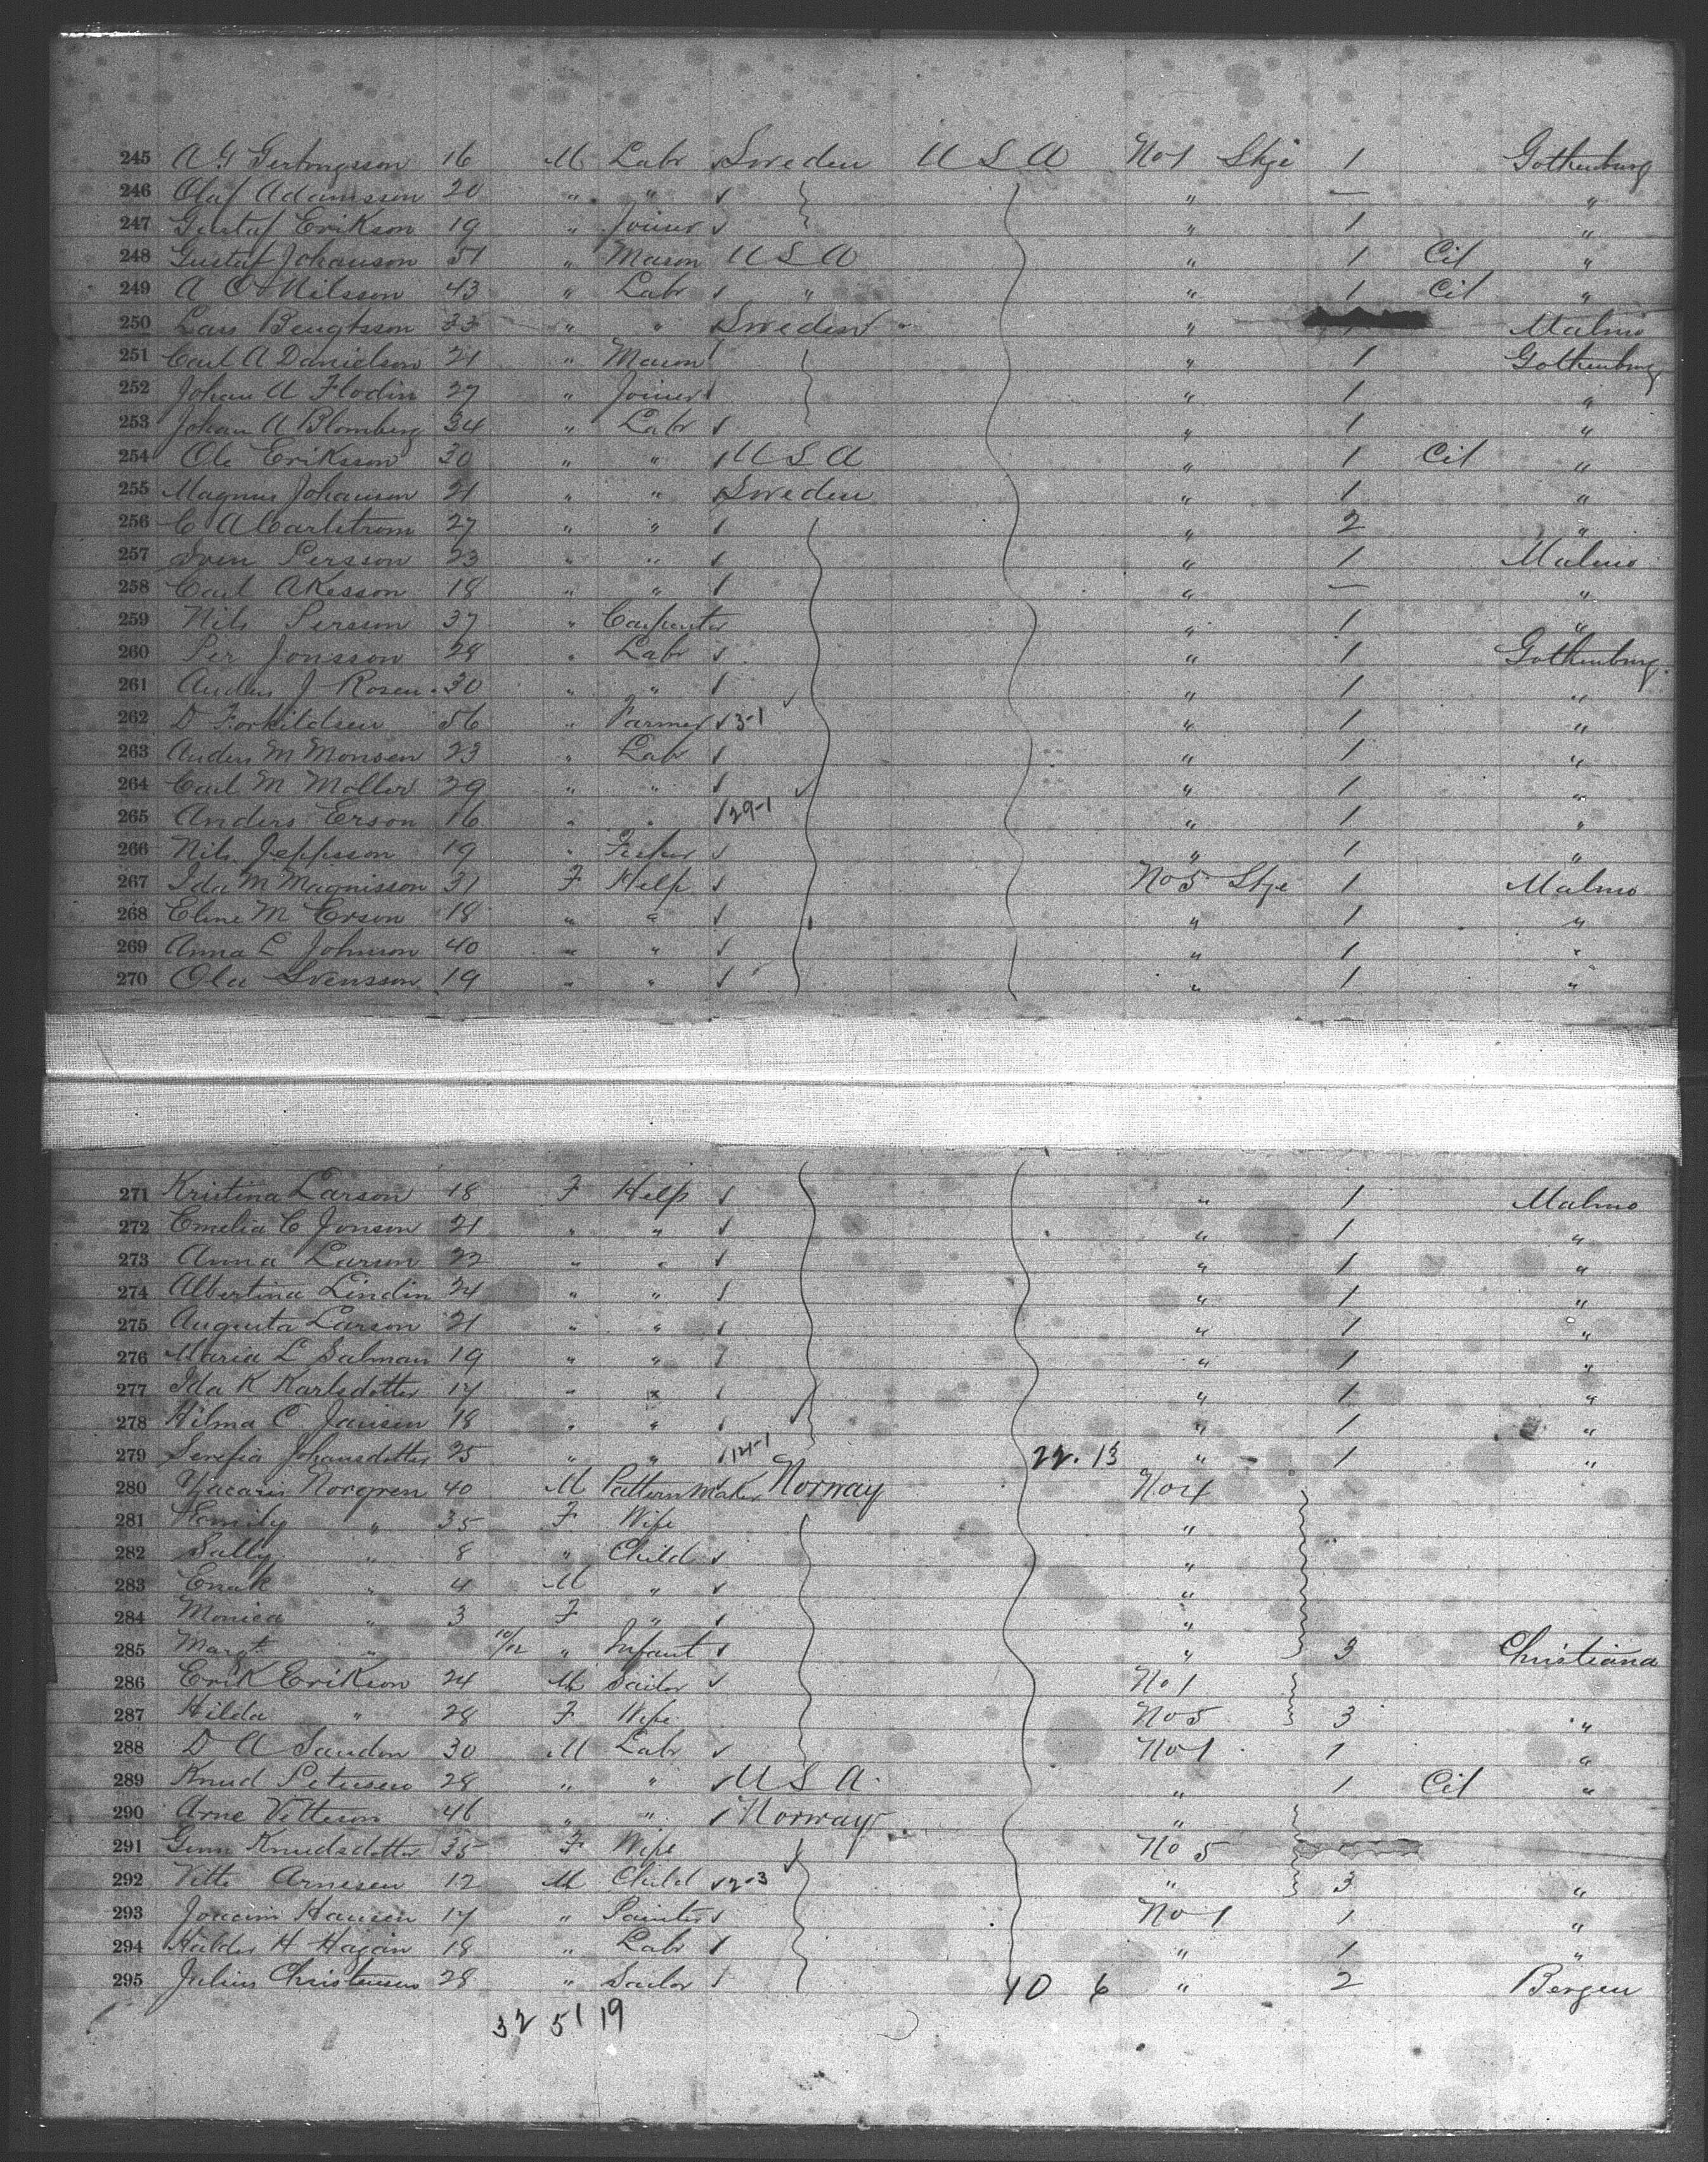 245 A G Gertongsson 16 M Labr Sweden U S A No 1 Stge 1 Gothenburg
246 Olaf Adamsson 20 " " — " "
247 Gustaf Erikson 19 " Joiner " 1 "
248 Gustaf Johanson 51 " Mason U S A " 1 Cit "
249 A O Nilsson 43 " Labr " " 1 Cit "
250 Lars Bengtsson 33 " " Sweden " " Malmo
251 Carl A Danielson 21 " Mason " 1 Gothenburg
252 Johan A Flodin 27 " Joiner " 1 "
253 Johan A Blomberg 34 " Labr " 1 "
254 Ole Eriksson 30 " " U S A " 1 Cit "
255 Magnus Johanson 21 " " Sweden " 1 "
256 C A Carlstrom 27 " " " 2 "
257 Sven Persson 23 " " " 1 Malmo
258 Carl Akesson 18 " " " — "
259 Nils Persson 37 " Carpenter " 1 "
260 Per Jonsson 28 " Labr " 1 Gothenburg
261 Anders J Rosen 30 " " " 1 "
262 D Forkildsen 56 " Farmer 3-1 " 1 "
263 Anders M Monsen 23 " Labr " 1 "
264 Carl M Moller 29 " " " 1 "
265 Anders Erson 16 " " 29-1 " 1 "
266 Nils Jeppsson 19 " " 1 "
267 Ida M Magnisson 31 F Help No 5 Stge 1 Malmo
268 Eline M Erson 18 " " " 1 "
269 Anna L Johnson 40 " " " 1 "
270 Ola Svensson 19 " " " 1 "
271 Kristina Larson 18 F Help " 1 Malmo
272 Emelia C Jonson 21 " " " 1 "
273 Anna Larson 22 " " " 1 "
274 Albertina Lindin 24 " " " 1 "
275 Augusta Larson 21 " " " 1 "
276 Maria L Salman 19 " " " 1 "
277 Ida K Karlsdotter 17 " " " 1 "
278 Hilma C Jansen 18 " " " 1 "
279 Serefia Johansdotter 25 " " 121-1 22.13 " 1 "
280 Zacaris Norgren 40 M Pattern Maker Norway No 4
281 Emily " 35 F Wife "
282 Sally " 8 " Child "
283 Enak " 4 M " "
284 Monica " 3 F " "
285 Margt " 10/12 " Infant " 3 Christiana
286 Erik Erikson 24 M Sailor No 1
287 Hilda " 28 F Wife No 5 3 "
288 D A Sandon 30 M Labr No 1 1 "
289 Knud Petersen 28 " " U S A " 1 Cit "
290 Arne Vetteson 46 " " Norway "
291 Gunn Knudsdotter 35 F Wife No 5
292 Vette Arnesen 12 M Child 2-3 " 3 "
293 Joacim Hansen 17 " Painter No 1 1 "
294 Haldor H Hagan 18 " Labr " 1 "
295 Julius Christensen 28 " Sailor 10 6 " 2 Bergen
32 51 19